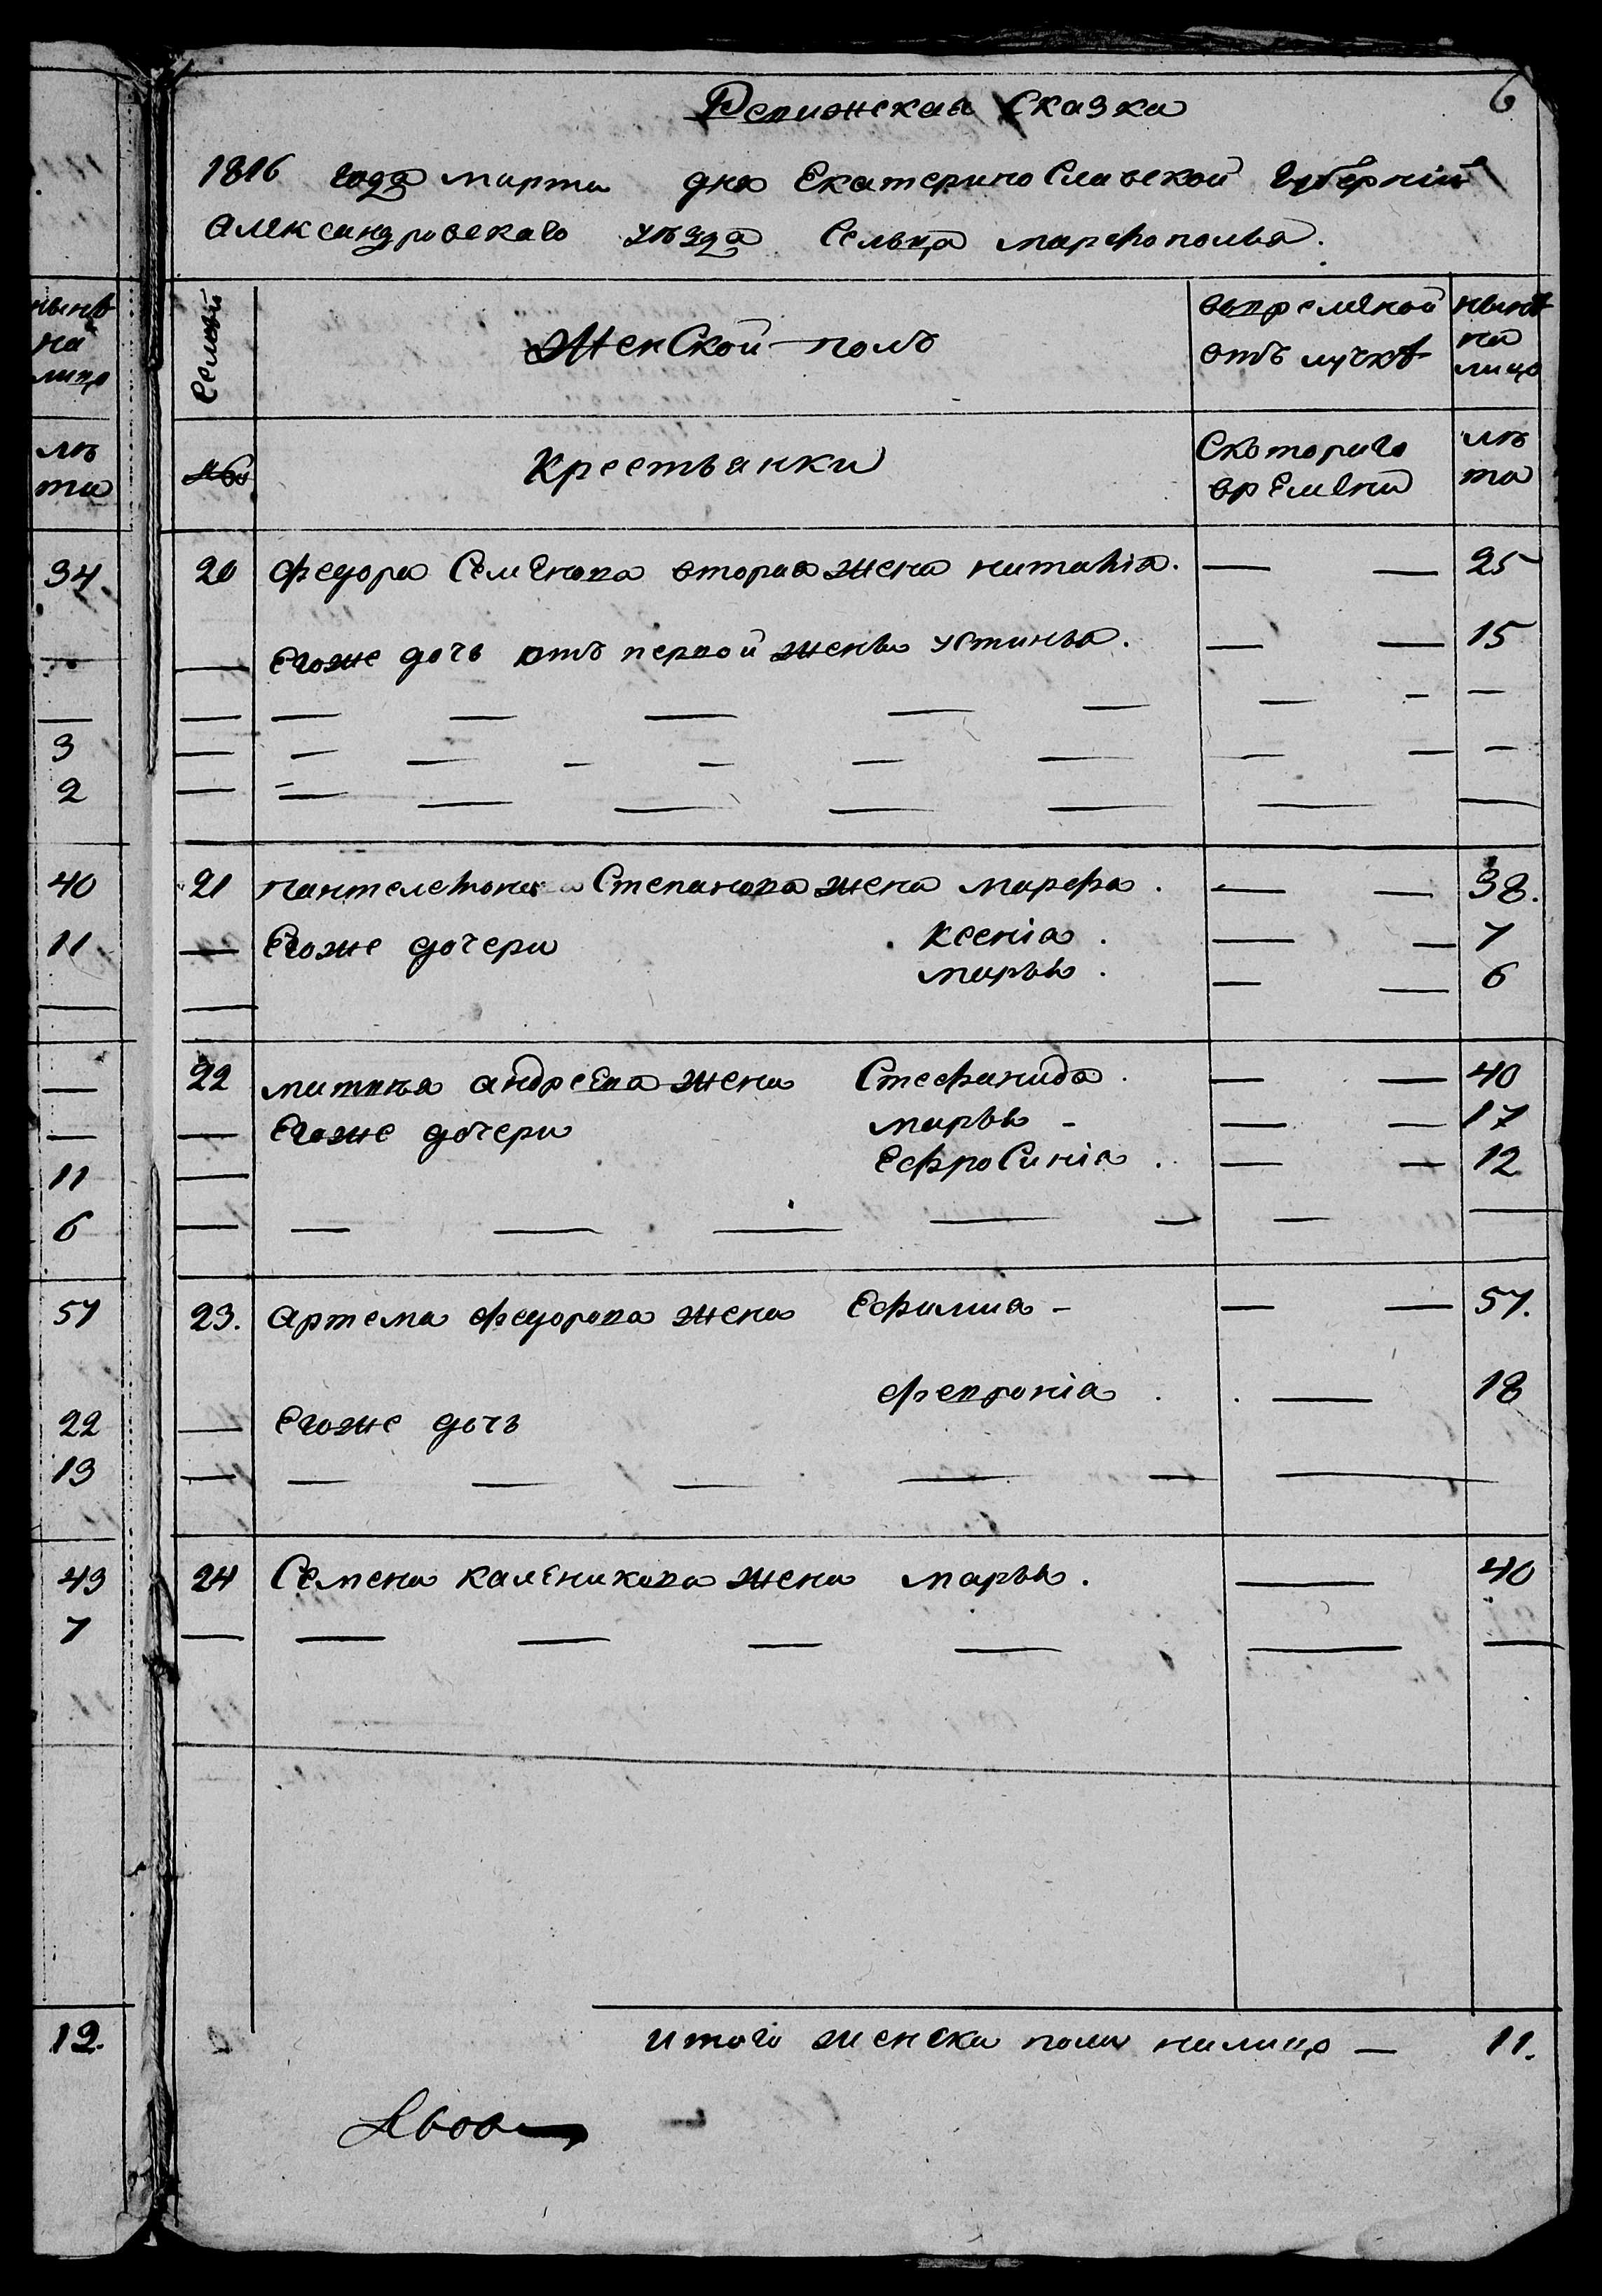 6
Ревижская Сказка
1816 года марта дня Екатерино Славской Губерніи
Александровскаго уѣзда Сельца марфополья.
нынѣ на лицо
Семьи
Женской полъ
вовремѣнной отъ лучкѣ
нынѣ на лицо
лѣ та
№
Крестьянки
Скоторого врЕмени
лѣ та
34 20 Федора СемЕнова вторая жена наталія. — — 25
— — Егоже дочь отъ первой жены устинья. — — 15
3
2
40 21 пантелеѣмона Степанова жена марфа. — — 38.
11 — Егоже дочери Ксенія. — — 7
марья. — — 6
— 22 матвѣя андрЕева жена Стефанида. — — 40
— — Егоже дочери марья - — — 17
11 — ЕфроСинія. — — 12
6
57 23. Артема федорова жена Ефимиа - — — 57.
февронія. — 18
22 — Егоже дочь
13
43 24 Семена калЕникова жена марья. — 40
7
12. итого женска полу налицо — 11.